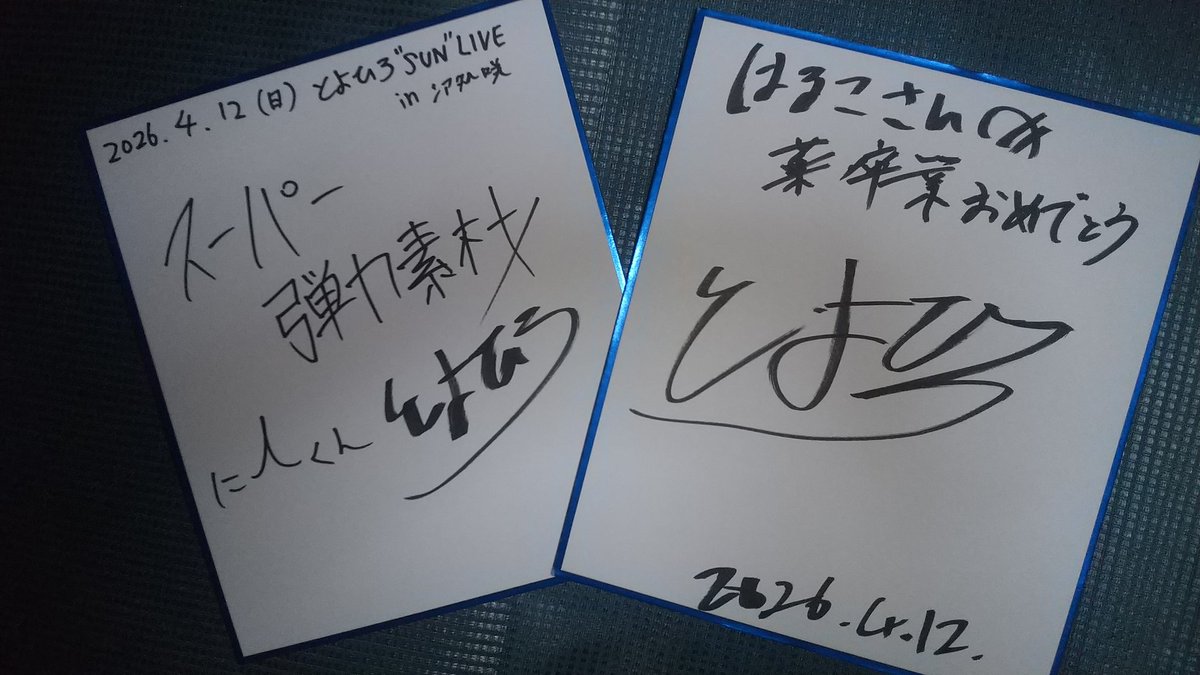 2026.4.12(日) とよひろ"SUN"LIVE
in シアター咲
スーパー
弾力素材
にしくん とよひろ
はるこさんの
薬卒業おめでとう
とよひろ
2026.4.12.